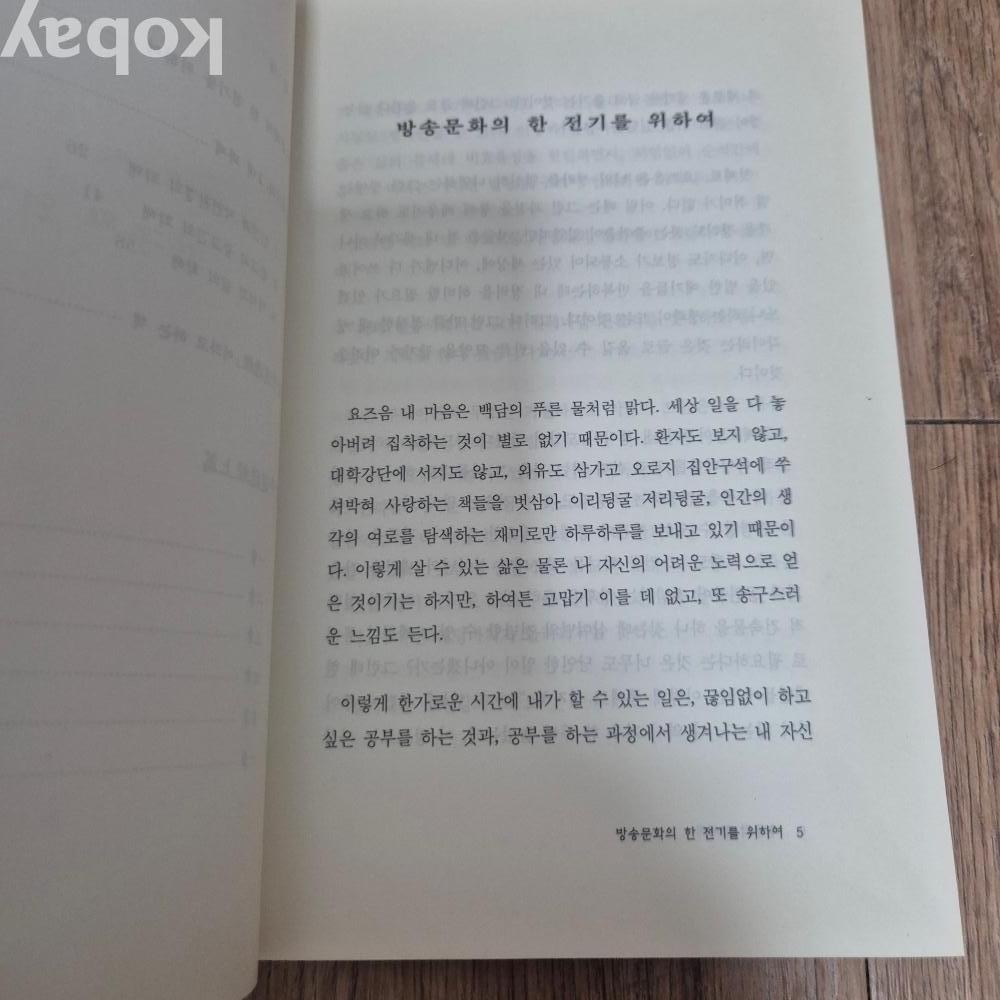 kobay
방송문화의 한 전기를 위하여
요즈음 내 마음은 백담의 푸른 물처럼 맑다. 세상 일을 다 놓
아버려 집착하는 것이 별로 없기 때문이다. 환자도 보지 않고,
대학강단에 서지도 않고, 외유도 삼가고 오로지 집안구석에 쑤
셔박혀 사랑하는 책들을 벗삼아 이리뒹굴 저리뒹굴, 인간의 생
각의 여로를 탐색하는 재미로만 하루하루를 보내고 있기 때문이
다. 이렇게 살 수 있는 삶은 물론 나 자신의 어려운 노력으로 얻
은 것이기는 하지만, 하여튼 고맙기 이를 데 없고, 또 송구스러
운 느낌도 든다.
이렇게 한가로운 시간에 내가 할 수 있는 일은, 끊임없이 하고
싶은 공부를 하는 것과, 공부를 하는 과정에서 생겨나는 내 자신
방송문화의 한 전기를 위하여 5